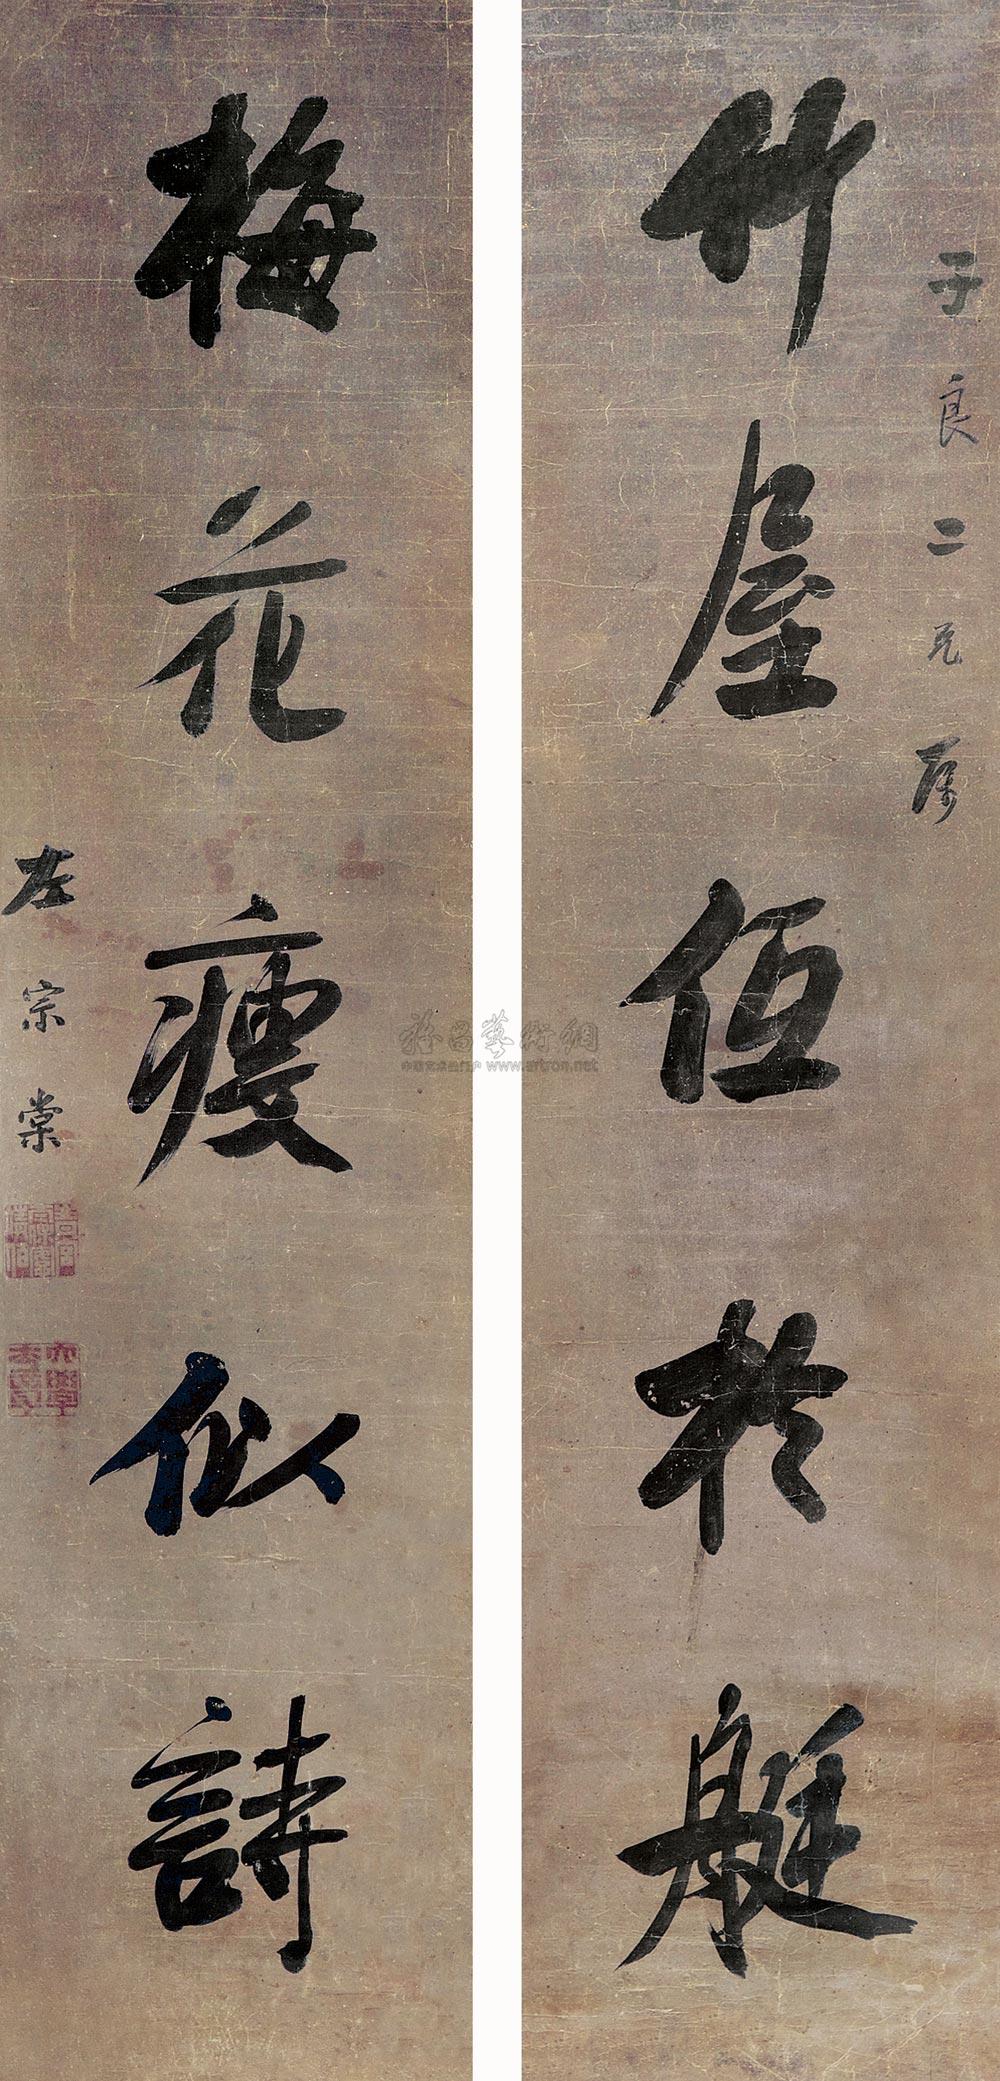 子良二兄屬
竹屋低於艇
梅花瘦似詩
左宗棠
雅昌藝術網
www.artron.net